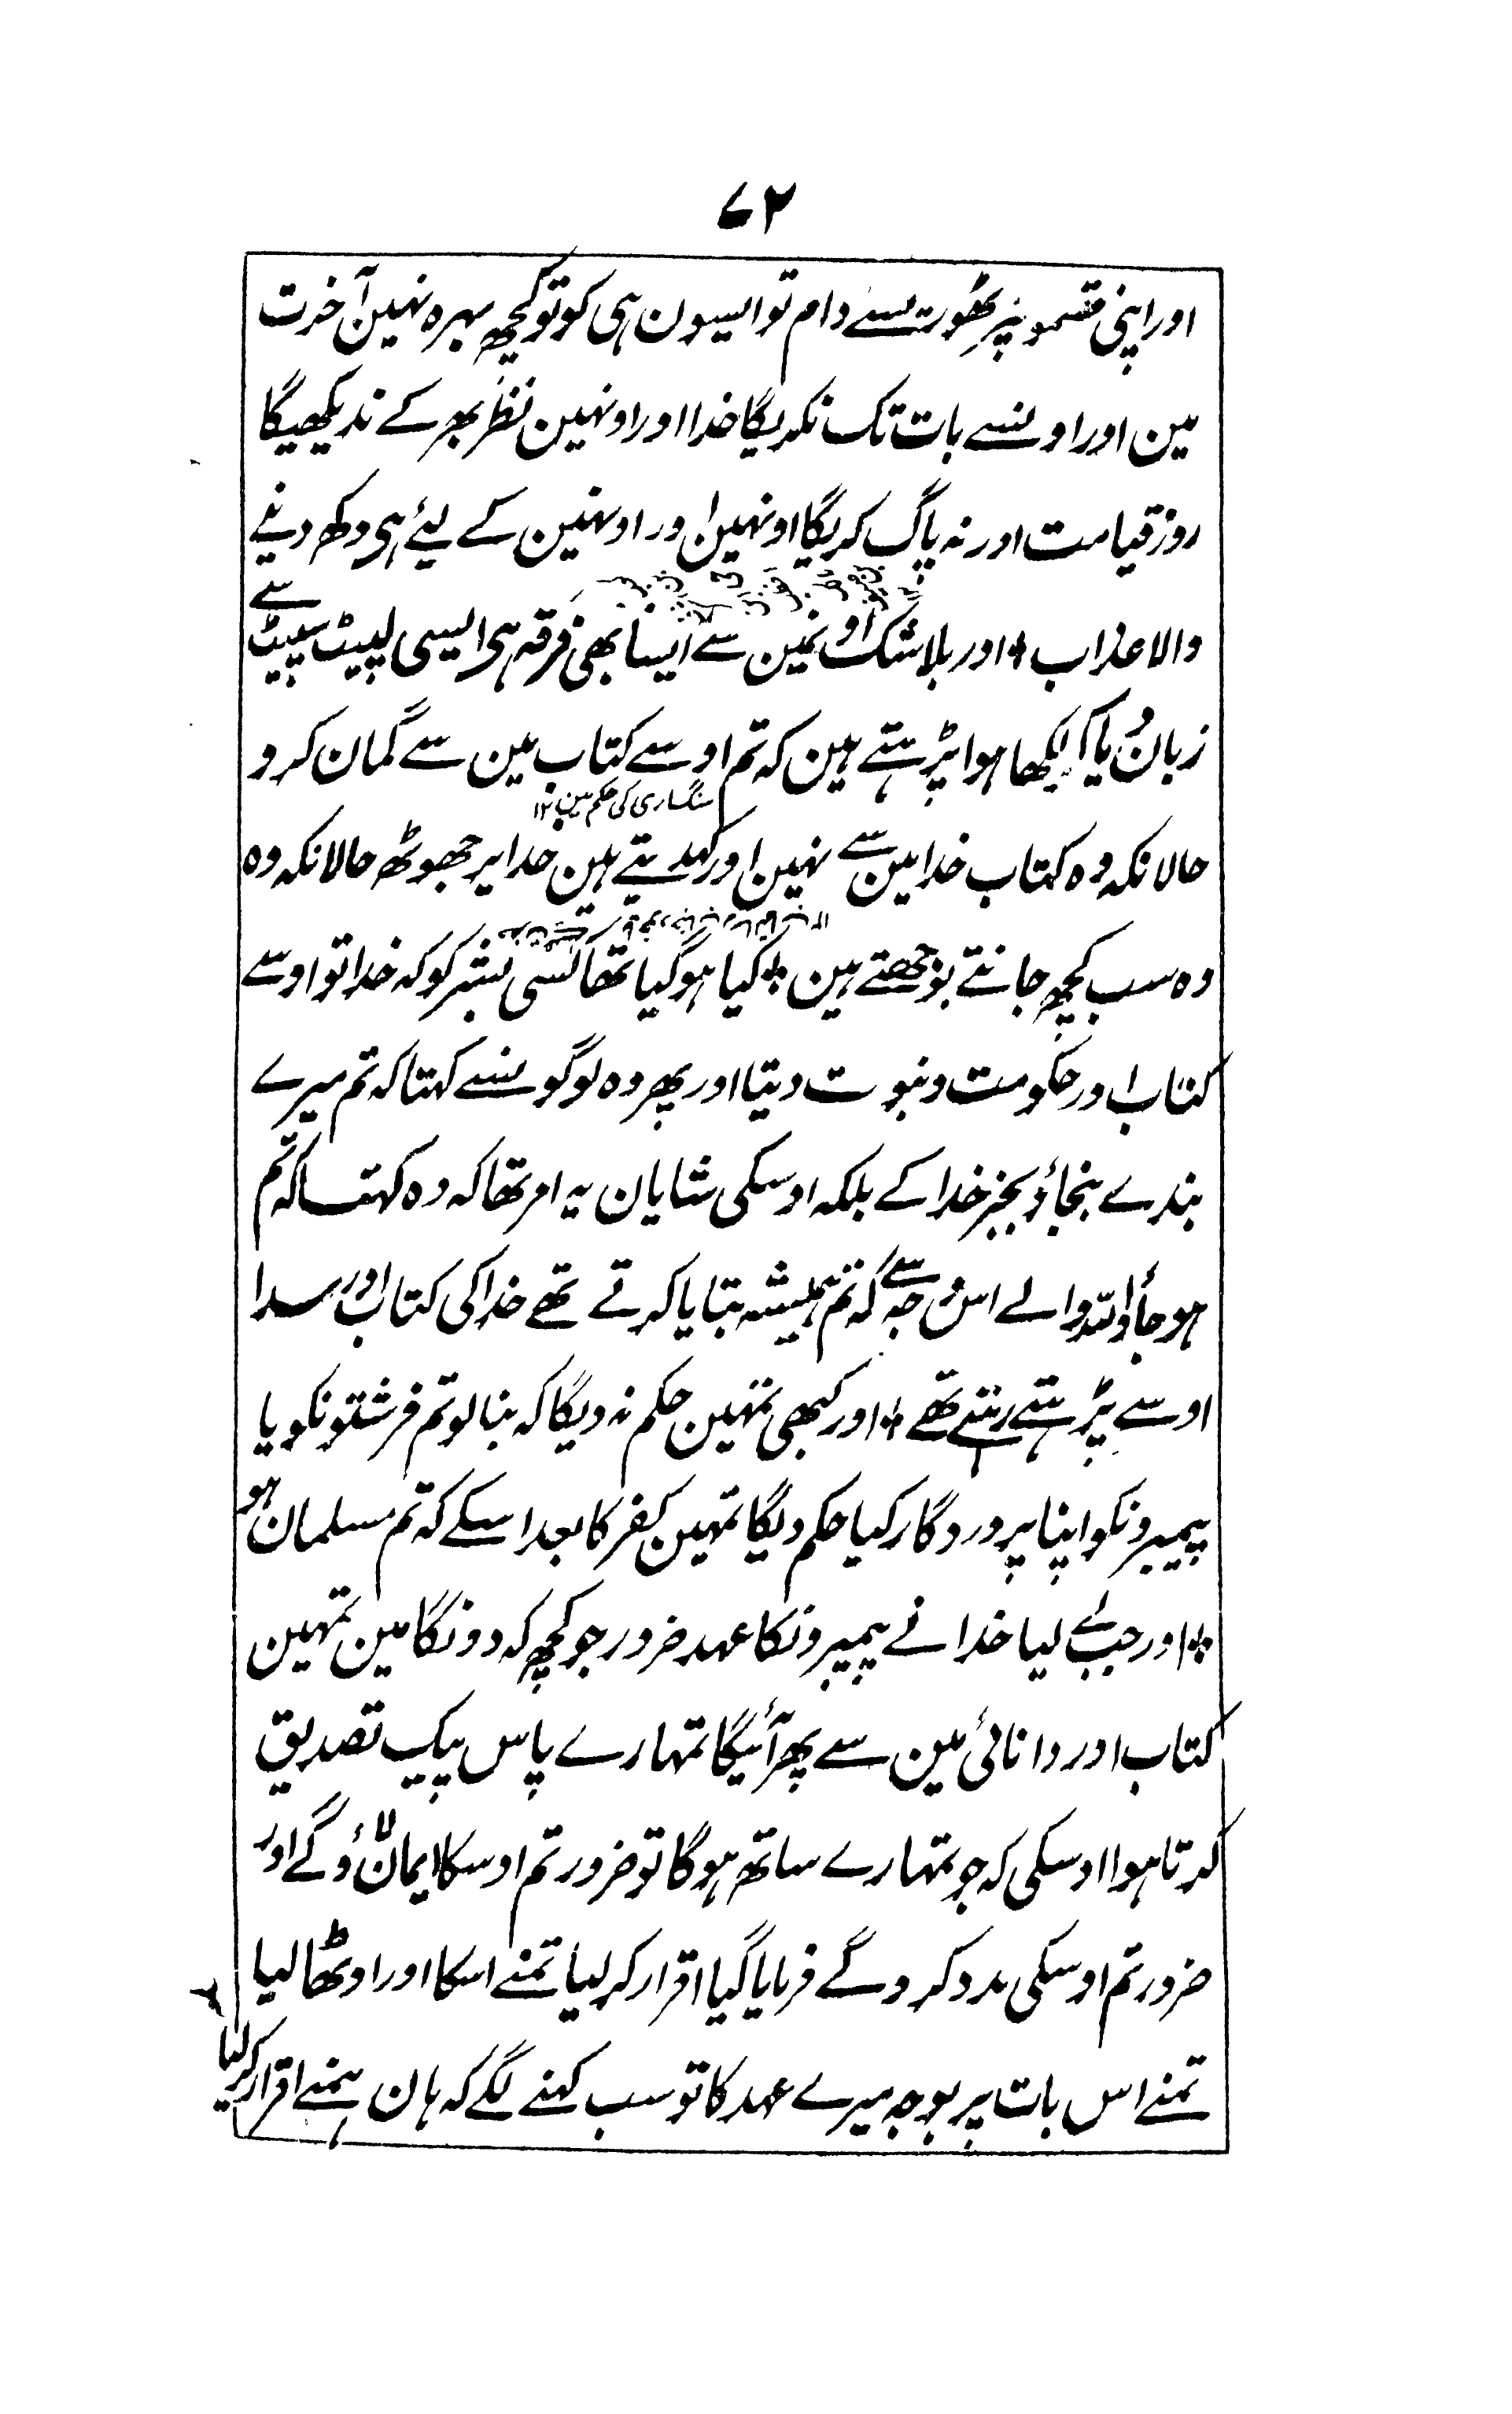 ۷۲
اور اپنی قسمونپر تھورتسے دام تو ایسون ہی کو تو کچھ بہرہ نہین آخرت
مین اور اونسے بات تک نکریگا خدا اور اونہین نظر بھر کے ندیکھیگا
روز قیامت اور نہ پاک کریگا اونہین اور اونہین کے لیئے ہی دکھ دینے
والا عذاب ۞ اور بلا شک اونمین سے ایسا بھی فرقہ ہی ایسی لپیٹ سپیٹ سے
زبان دیا کر لکھا ہوا پڑہتے ہین کہ تم اوسے کتاب مین سے گمان کرو
سنگساری کی حکم مین ۱۲
حالانکہ وہ کتاب خدا مین سے نہین اور کہدیتے ہین خدا پر جھوٹھ حالانکہ وہ
وہ سب کچھ جانتے بوجھتے ہین ۞ کیا ہو گیا تھا کسی بشر کو کہ خدا تو اوسے
کتاب اور حکومت و نبوت دیتا اور پھر وہ لوگونسے کہتا کہ تم میرے
بندے بنجاؤ بجز خدا کے بلکہ اوسکی شایان یہ امر تھا کہ وہ کہتا کہ تم
ہو جاؤ اللہ والے اس وجہ سے کہ تم ہمیشہ بتایا کرتے تھے خدا کی کتاب اور سدا
اوسے پڑہتے رہتے تھے ۞ اور کبھی تمہین حکم نہ دیگا کہ بنا لو تم فرشتونکو یا
پیمبرونکو اپنا پروردگار کیا حکم دیگا تمہین کفر کا بعد اسکے کہ تم مسلمان ہو
۞ اور جب لے لیا خدا نے پیمبرونکا عہد ضرور جو کچھ کہ دونگا مین تمہین
کتاب اور دانائی مین سے پھر آئیگا تمہارے پاس پیک تصدیق
کرتا ہوا اوسکی کہ جو تمہارے ساتھ ہوگا تو ضرور تم اوسکا ایمان لاؤ گے اور
ضرور تم اوسکی مدد کروگے فرمایا گیا اقرار کر لیا تمنے اسکا اور اوٹھا لیا
تمنے اس بات پر بوجہ میرے عہد کا تو سب کہنے لگے کہ ہان ہمنے اقرار کر لیا